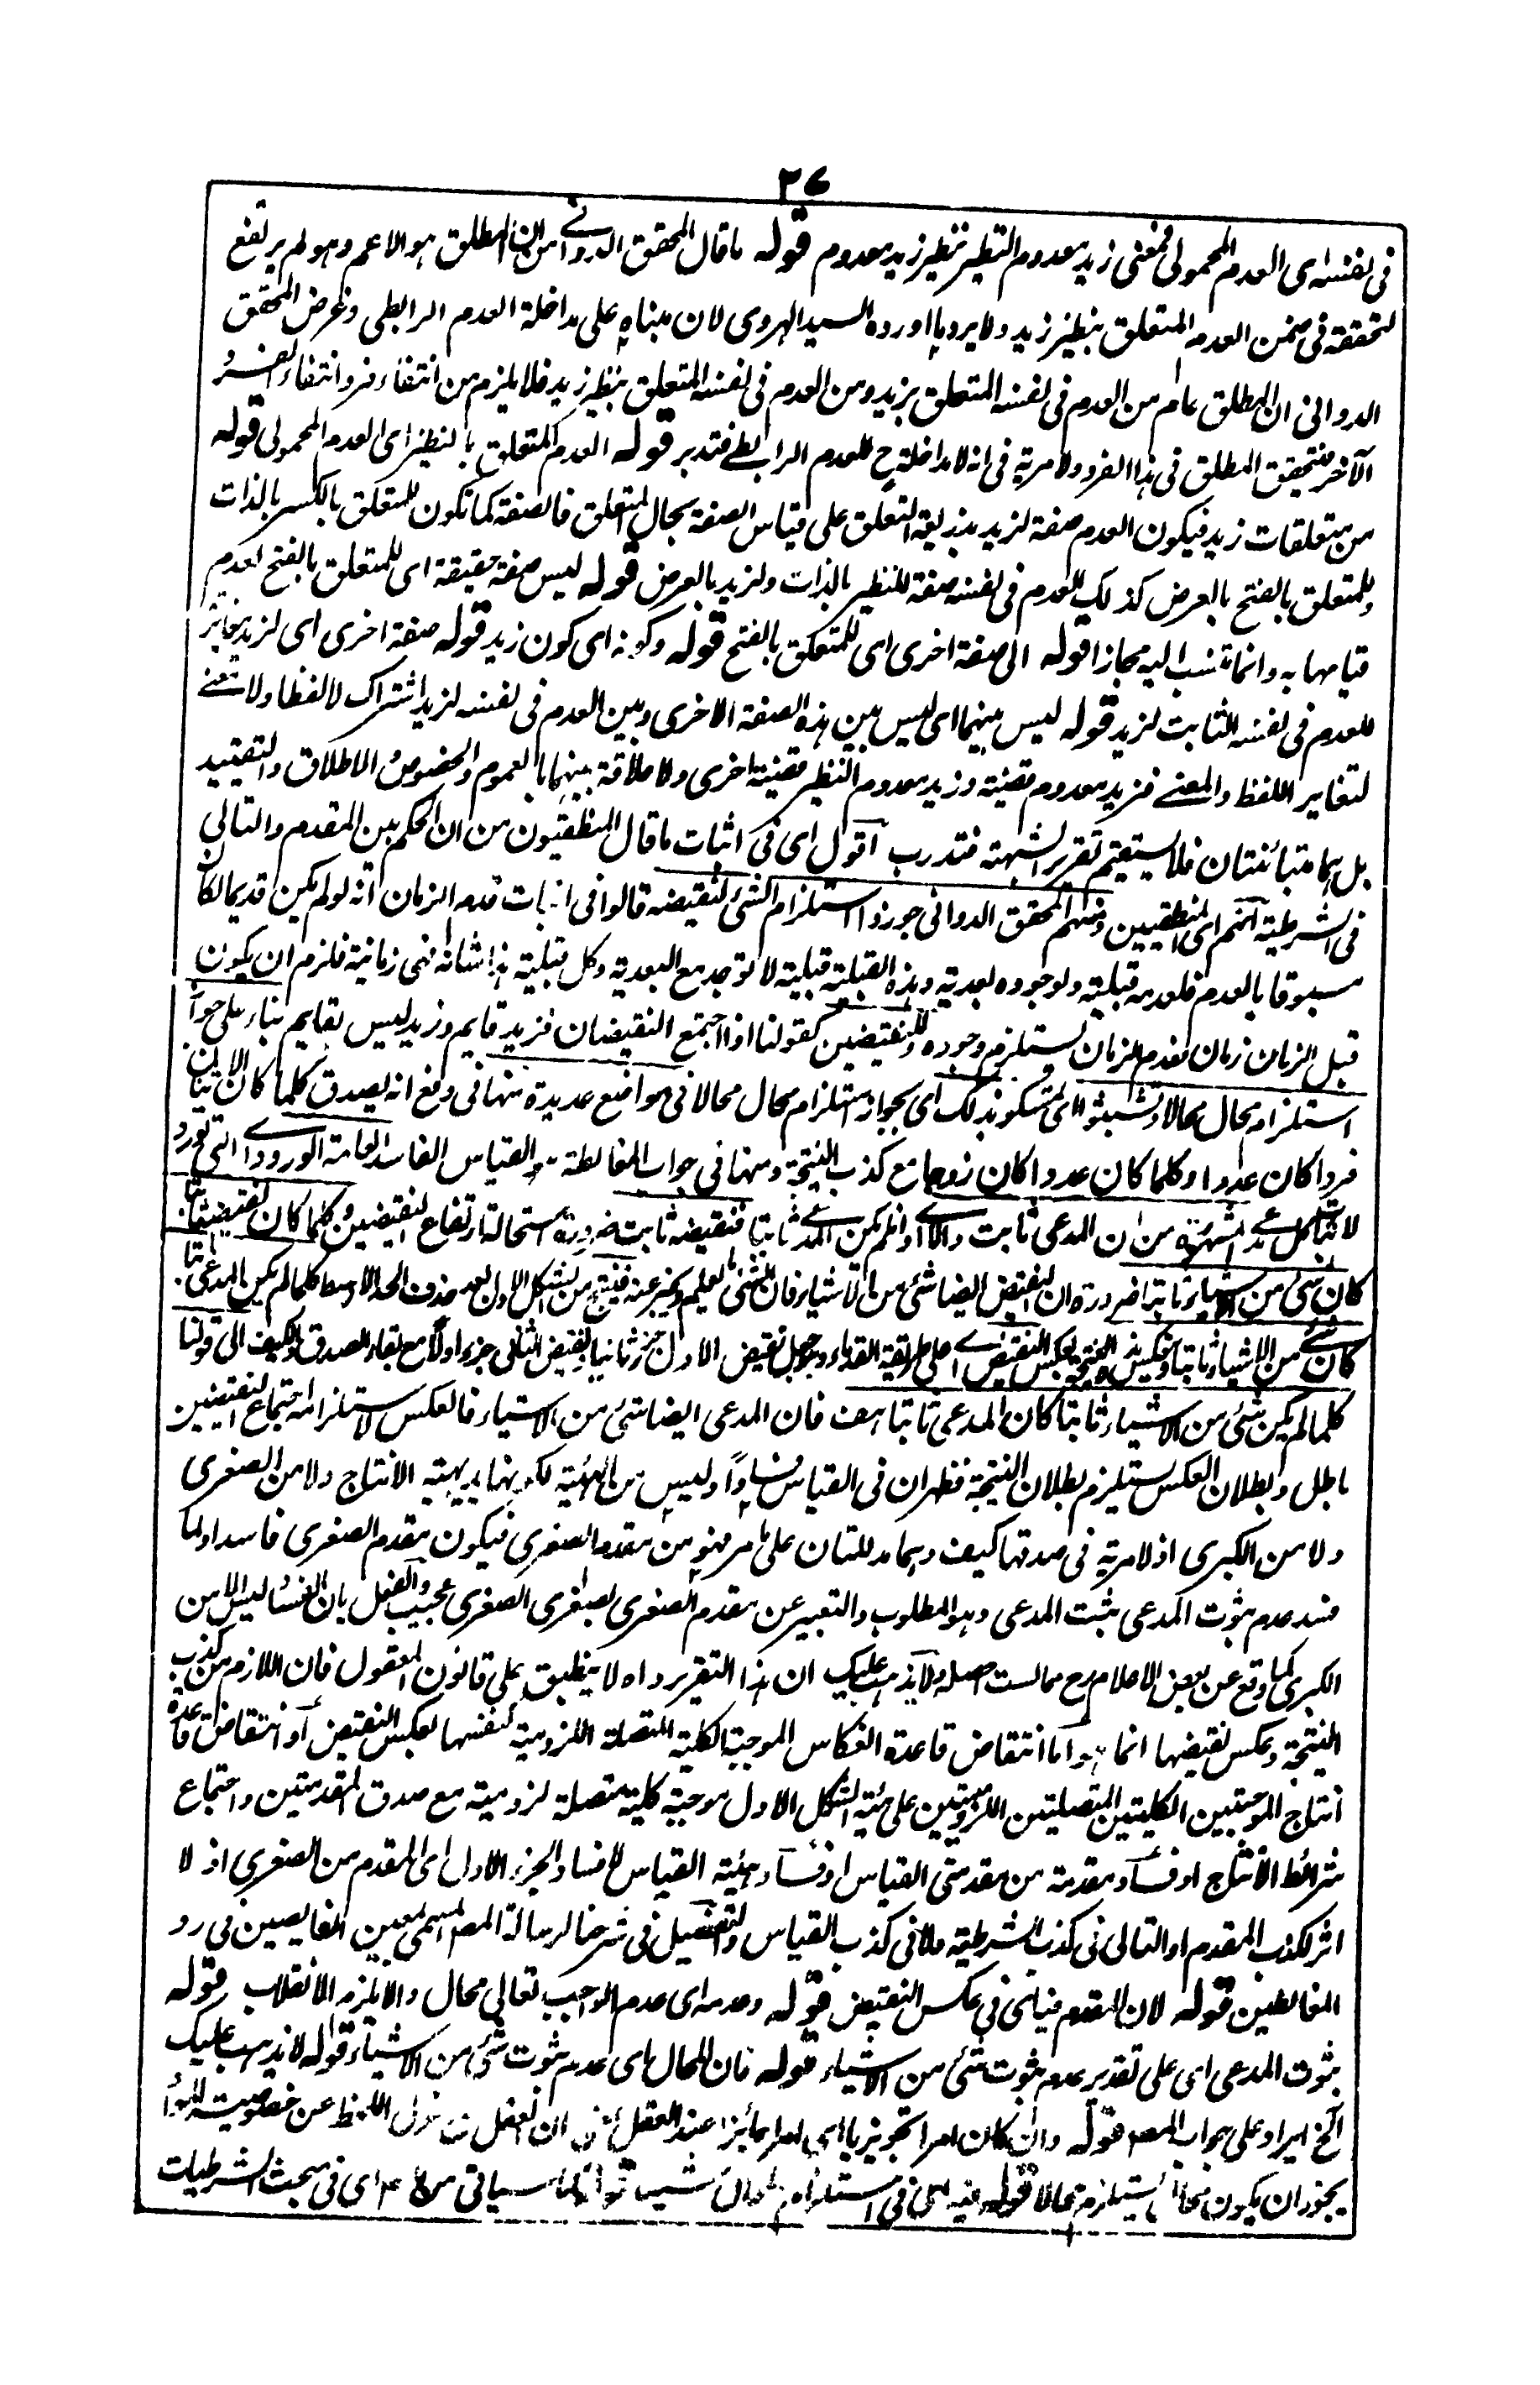 ٣٧
فى نفسه اى العدم المحمولى فمعنى زيد معدوم النظير نظير زيد معدوم قوله ما قال المحقق الدوانے من ان المطلق هو الاعم وهو لم يرتفع
لتحققه فى ضمن العدم المتعلق بنظير زيد ولا يرد ما اورده السيد الهروى لان مبناه على مداخلة العدم الرابطى وغرض المحقق
الدوانى ان المطلق عام من العدم فى نفسه المتعلق بزيد ومن العدم فى نفسه المتعلق بنظير زيد فلا يلزم من انتفاء فرد انتفاء الفرد
الآخر فتحقق المطلق فى هذا الفرد ولا مرية فى انه لا مداخلة ح للعدم الرابطے فتدبر قوله العدم المتعلق بالنظير اى العدم المحمولى قوله
من متعلقات زيد فيكون العدم صفة لزيد بذريعة التعلق على قياس الصفة بحال المتعلق فالصفة كما تكون للمتعلق بالكسر بالذات
وللمتعلق بالفتح بالعرض كذلك للعدم فى نفسه صفة للنظير بالذات ولزيد بالعرض قوله ليس صفة حقيقة اى للمتعلق بالفتح لعدم
قيامها به وانما تنسب اليه مجازا قوله الى صفة اخرى اى للمتعلق بالفتح قوله وكونه اى كون زيد قوله صفة اخرى اى لزيد مغاير
للعدم فى نفسه الثابت لزيد قوله ليس بينهما اى ليس بين هذه الصفة الاخرى وبين العدم فى نفسه لزيد اشتراك لا لفظا ولا معنے
لتغاير اللفظ والمعنے فزيد معدوم قضية وزيد معدوم النظير قضية اخرى ولا علاقة بينهما بالعموم والخصوص الاطلاق والتقييد
بل هما متباينتان فلا يستقيم تقرير الشبهة فتدرب اقول اى فى اثبات ما قال المنطقيون من ان الحكم بين المقدم والتالى
فى الشرطية انهم اى المنطقيين ومنهم المحقق الدوانى جوزوا استلزام الشئ لنقيضه قالوا فى اثبات قدم الزمان انه لو لم يكن قديما لكان
مسبوقا بالعدم فلعدمه قبلية ولوجوده بعدية وهذه القبلية قبلية لا توجد مع البعدية وكل قبلية هذا شانه فهى زمانية فلزم ان يكون
قبل الزمان زمان فعدم الزمان يستلزم وجوده وللنقيضين كقولنا اذا اجتمع النقيضان فزيد قايم وزيد ليس بقايم بناء على جواز
استلزام محال محالا وتشبثوا اى تمسكوا بذلك اى بجواز استلزام محال محالا فى مواضع عديدة منها فى دفع انه يصدق كلما كان الاثنان
فردا كان عددا وكلما كان عددا كان زوجا مع كذب النتيجة ومنها فى جواب المغالطة هو القياس الفاسد العامة الورود اے التى تورد
لاثبات كل مدعے المشهرة من ان المدعى ثابت والا اے اذا لم يكن المدعے ثابتا فنقيضه ثابت ضرورة استحالة ارتفاع النقيضين وكلما كان نقيضه ثابتا
كان شئ من الاشياء ثابتا ضرورة ان النقيض ايضا شئ من الاشياء فان الشئ ما يعلم ويخبر عنه فينتج من الشكل الاول بعد حذف الحد الاوسط كلما لم يكن المدعى ثابتا
كان شے من الاشياء ثابتا وتنعكس هذه النتيجة بعكس النقيض اے على طريقة القدماء وهو جعل نقيض الاول جزء ثانيا ونقيض الثانى جزء اولا مع بقاء الصدق والكيف الى قولنا
كلما لم يكن شئ من الاشياء ثابتا كان المدعى ثابتا هف فان المدعى ايضا شئ من الاشياء فالعكس لاستلزامه اجتماع النقيضين
باطل وبطلان العكس يستلزم بطلان النتيجة فظهر ان فى القياس فسادا وليس من الهيئة لكونها بديهية الانتاج ولا من الصغرى
ولا من الكبرى اذ لا مرية فى صدقها كيف وهما مدللتان على ما مر فهو من مقدم الصغرى فيكون مقدم الصغرى فاسدا ولما
فسد عدم ثبوت المدعى يثبت المدعى وهو المطلوب والتعبير عن مقدم الصغرى بصغرى الصغرى عجيب والقول بان الفساد ليس الا من
الكبرى كما وقع عن بعض الاعلام رح مما لست احصله ولا يذهب عليك ان هذا التقرير واه لا ينطبق على قانون المعقول فان اللازم من كذب
النتيجة وعكس نقيضها انما هو اما انتقاض قاعدة انعكاس الموجبة الكلية المتصلة اللزومية كنفسها بعكس النقيض أو انتقاض قاعدة
انتاج الموجبتين الكليتين المتصلتين اللزوميتين على هيئة الشكل الاول موجبة كلية متصلة لزومية مع صدق المقدمتين واجتماع
شرائط الانتاج او فساد مقدمة من مقدمتى القياس او فساد هيئة القياس لا فساد الجزء الاول اى المقدم من الصغرى اذ لا
اثر لكذب المقدم او التالى فى كذب الشرطية ولا فى كذب القياس والتفصيل فى شرحنا لرسالة المصـ المسمى بمعين الغايصين فى رد
المغالطين قوله لان المقدم فيناى فى عكس النقيض قوله وعدمه اى عدم الواجب تعالى محال والا يلزم الانقلاب قوله
ثبوت المدعى اى على تقدير عدم ثبوت شئ من الاشياء قوله فان المحال اى عدم ثبوت شئ من الاشياء قوله لا يذهب عليك
آلخ ايراد على جواب المصـ قوله وان كان امرا تجويزيا اى امرا جائزا عند العقل ان العقل اللحظ عن خصوصية المواد
يجوز ان يكون محالا يستلزم محالا قوله فيه اى فى استلزام المحال قوله كما سياتى من اى فى مبحث الشرطيات